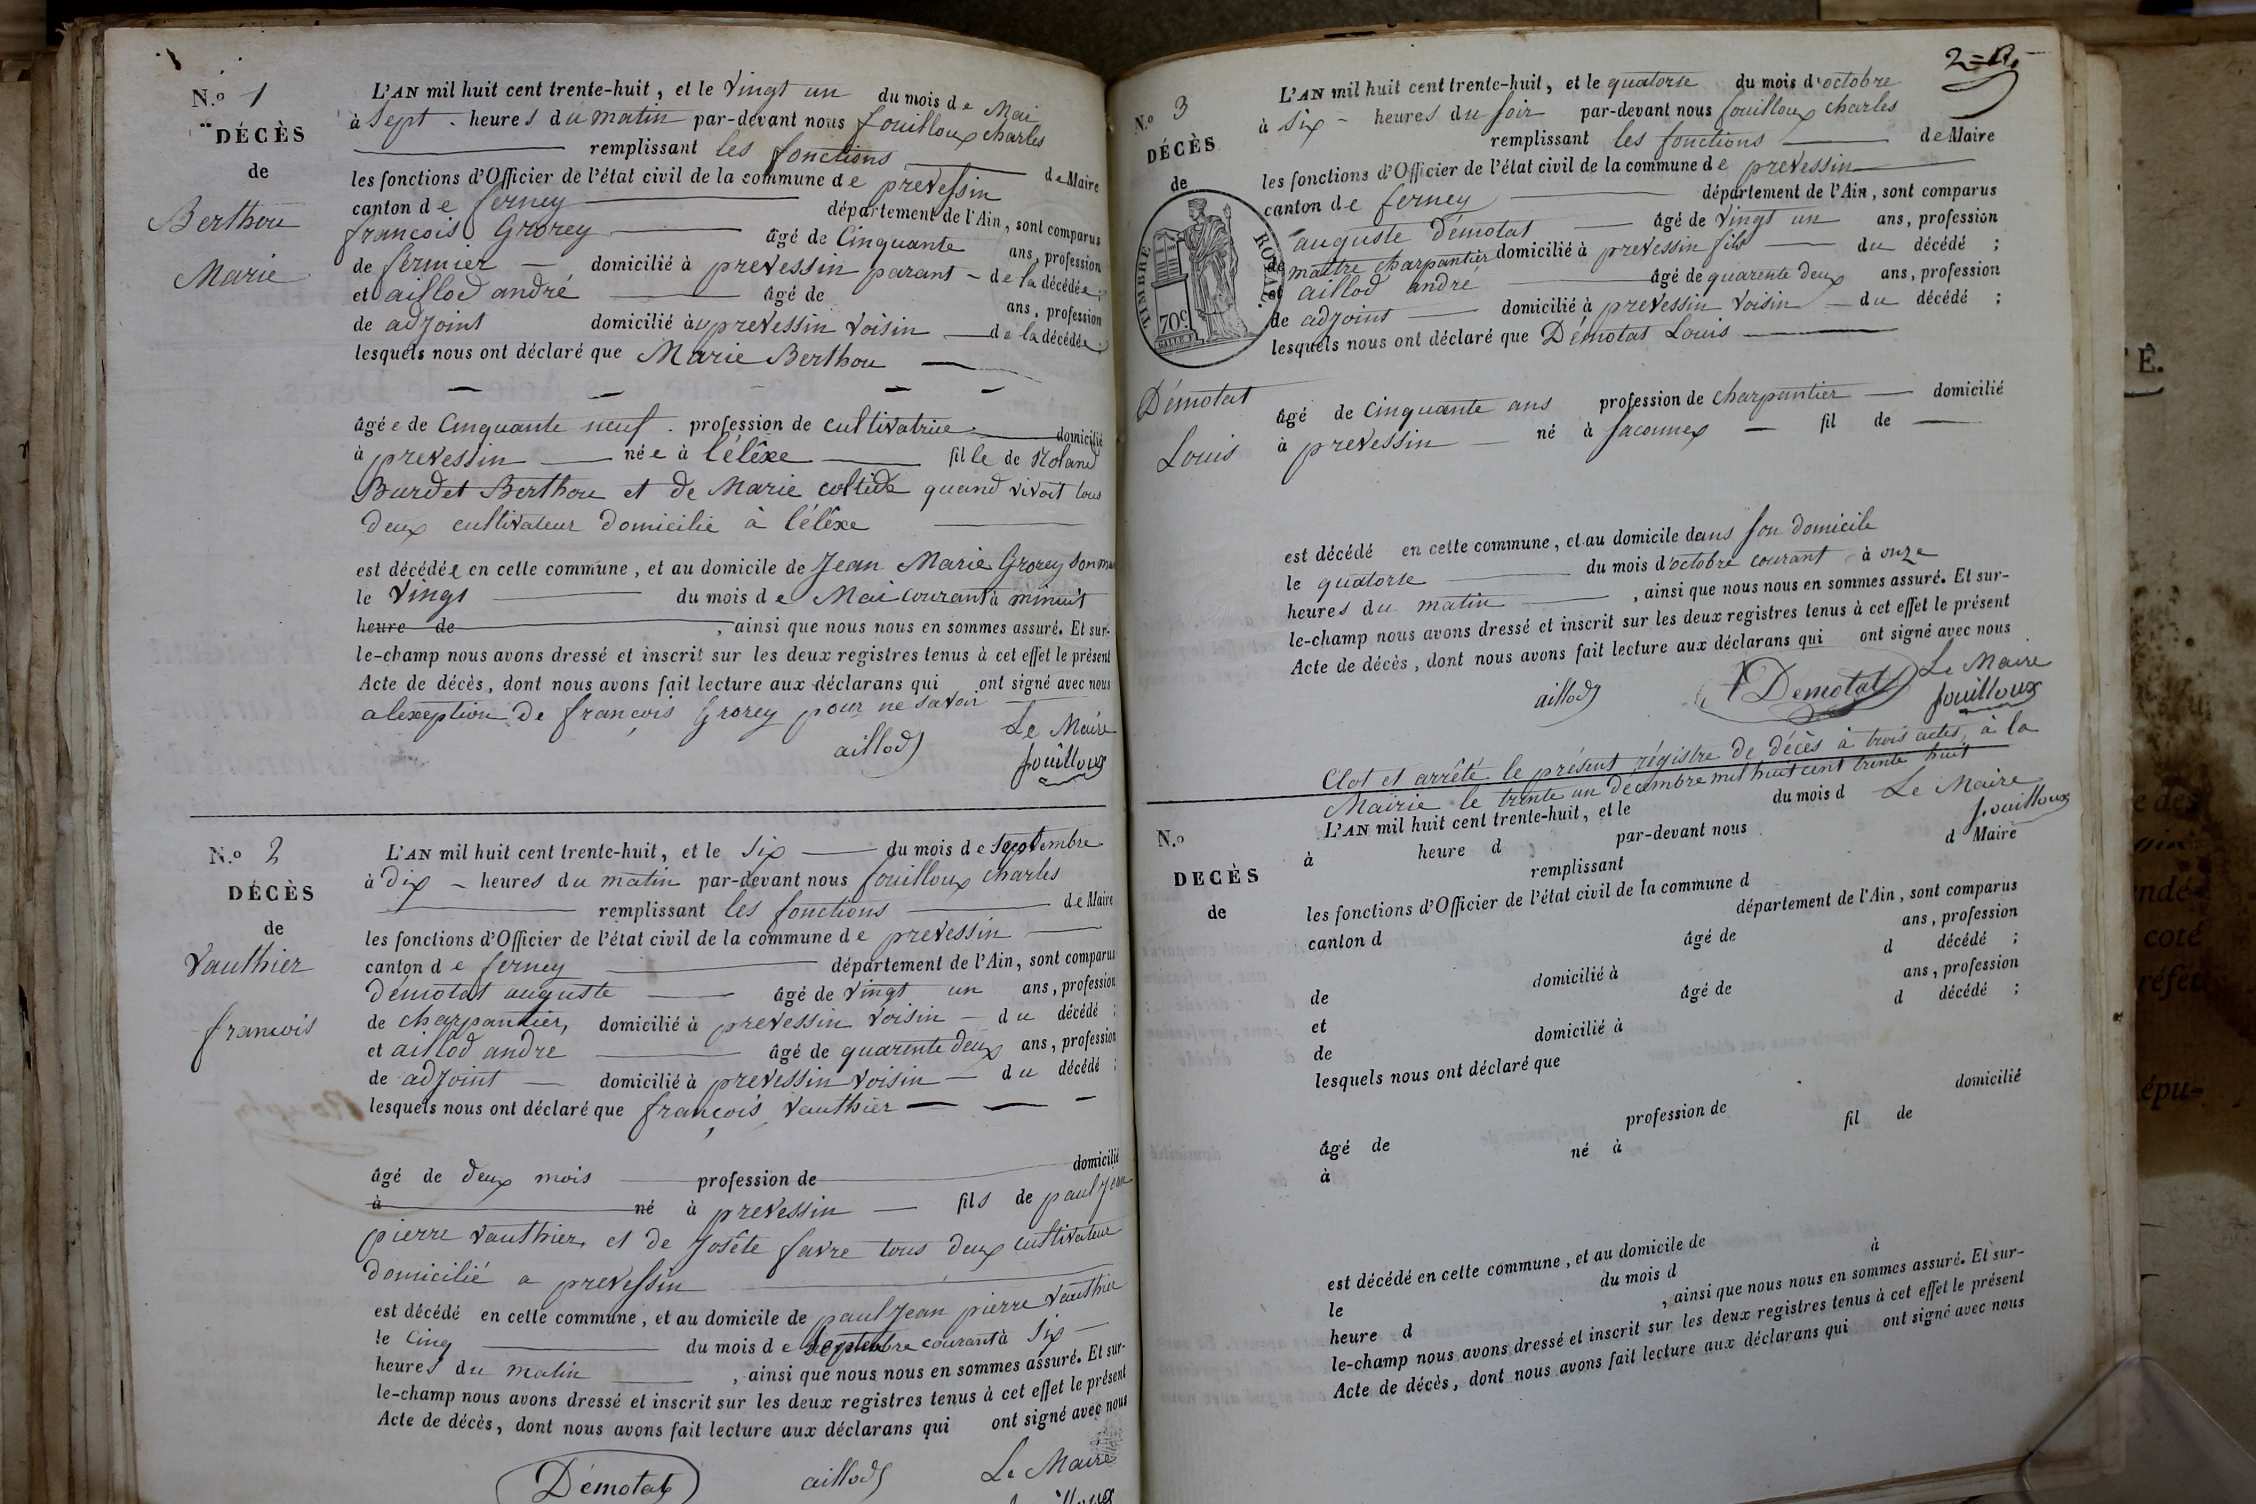 N.º 1
DÉCÈS
de
Berthou
Marie
L'AN mil huit cent trente-huit, et le Vingt un du mois de Mai
à Sept - heures du matin par-devant nous fouilloux charles
remplissant les fonctions de Maire
les fonctions d'Officier de l'état civil de la commune de prevessin
canton de ferney département de l'Ain, sont comparus
francois Grorey âgé de Cinquante ans, profession
de fermier domicilié à prevessin parant - de la décédée;
et aillod andré âgé de ans, profession
de adjoint domicilié à prevessin voisin de la décédée;
lesquels nous ont déclaré que Marie Berthou
âgée de Cinquante neuf. profession de cultivatrice domicilié
à prevessin née à léléxe fille de Roland
Burdet Berthou et de Marie quand vivoit tous
deux cultivateur domicilié à léléxe
est décédée en cette commune, et au domicile de Jean Marie Grorey son
le Vingt du mois de Mai courant à minuit
heure de , ainsi que nous nous en sommes assuré. Et sur-
le-champ nous avons dressé et inscrit sur les deux registres tenus à cet effet le présent
Acte de décès, dont nous avons fait lecture aux déclarans qui ont signé avec nous
alexeption de françois Grorey pour ne savoir
aillod Le Maire
fouilloux
N.º 2
DÉCÈS
de
Vauthier
francois
L'AN mil huit cent trente-huit, et le six du mois de Septembre
à dix - heures du matin par-devant nous fouilloux charles
remplissant les fonctions de Maire
les fonctions d'Officier de l'état civil de la commune de prevessin
canton de ferney département de l'Ain, sont comparus
démotat auguste âgé de vingt un ans, profession
de charpantier, domicilié à prevessin voisin - du décédé;
et aillod andre âgé de quarente deux ans, profession
de adjoint domicilié à prevessin voisin - du décédé;
lesquels nous ont déclaré que françois Vauthier
âgé de deux mois profession de domicilié
à né à prevessin fils de paul jean
pierre vauthier, et de Joséte favre tous deux cultivateur
domicilié a prevessin
est décédé en cette commune, et au domicile de paul jean pierre vauthier
le Cinq du mois de Septembre courant à Six
heures du matin , ainsi que nous nous en sommes assuré. Et sur-
le-champ nous avons dressé et inscrit sur les deux registres tenus à cet effet le présent
Acte de décès, dont nous avons fait lecture aux déclarans qui ont signé avec nous
Démotat aillod Le Maire
N.º 3
DÉCÈS
de
TIMBRE ROYAL.
70c
Démotat
Louis
L'AN mil huit cent trente-huit, et le quatorse du mois d'octobre
à six - heures du soir par-devant nous fouilloux charles
remplissant les fonctions de Maire
les fonctions d'Officier de l'état civil de la commune de prevessin
canton de ferney département de l'Ain, sont comparus
auguste démotat âgé de Vingt un ans, profession
de maître charpantier domicilié à prevessin fils du décédé;
et aillod andré âgé de quarente deux ans, profession
de adjoint domicilié à prevessin voisin du décédé;
lesquels nous ont déclaré que Démotat Louis
âgé de Cinquante ans profession de charpantier domicilié
à prevessin né à saconnex fil de
est décédé en cette commune, et au domicile dans son domicile
le quatorse du mois d'octobre courant à onze
heures du matin , ainsi que nous nous en sommes assuré. Et sur-
le-champ nous avons dressé et inscrit sur les deux registres tenus à cet effet le présent
Acte de décès, dont nous avons fait lecture aux déclarans qui ont signé avec nous
aillod Démotat Le Maire
fouilloux
Clot et arrêté le présent régistre de décès à trois actes, à la
Mairie le trente un décembre mil huit cent trente huit
Le Maire
fouilloux
N.º
DÉCÈS
de
L'AN mil huit cent trente-huit, et le du mois d
à heure d par-devant nous
remplissant d Maire
les fonctions d'Officier de l'état civil de la commune d
canton d département de l'Ain, sont comparus
âgé de ans, profession
de domicilié à d décédé;
et âgé de ans, profession
de domicilié à d décédé;
lesquels nous ont déclaré que
âgé de profession de domicilié
à né à fil de
est décédé en cette commune, et au domicile de
le du mois d à
heure d , ainsi que nous nous en sommes assuré. Et sur-
le-champ nous avons dressé et inscrit sur les deux registres tenus à cet effet le présent
Acte de décès, dont nous avons fait lecture aux déclarans qui ont signé avec nous